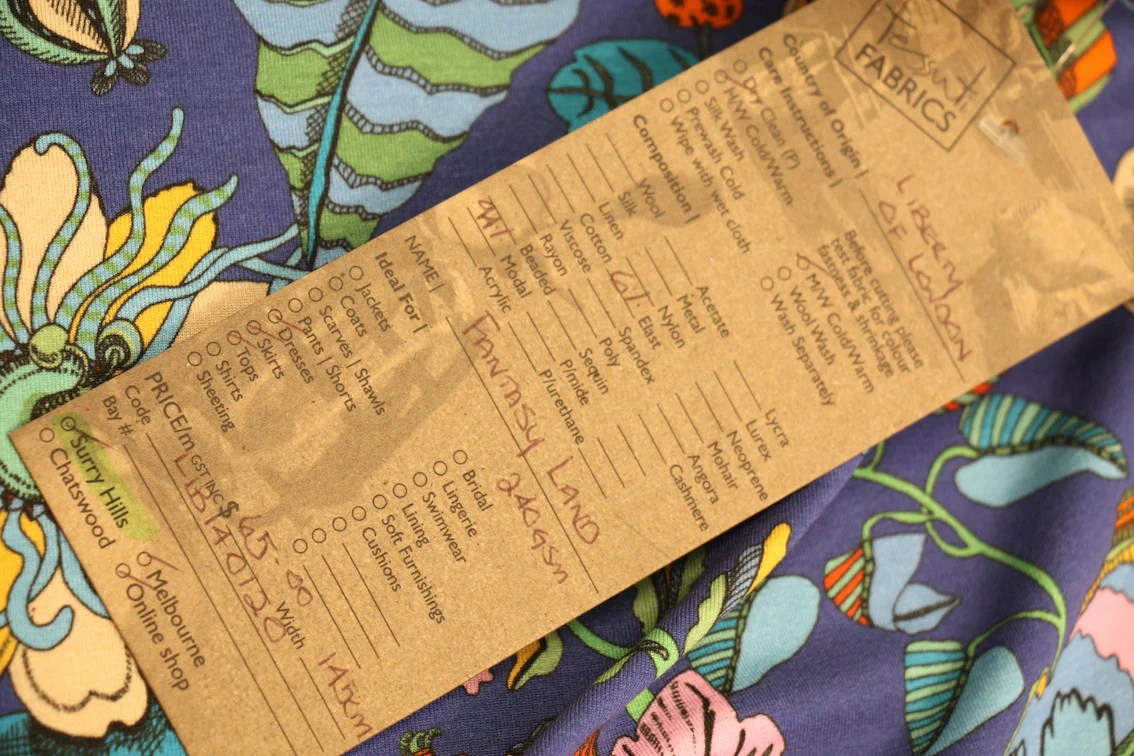 Tessuti
FABRICS
LIBERTY
OF LONDON
Country of Origin |
Care Instructions |
Dry Clean (P)
H/W Cold/Warm
Silk Wash
Prewash Cold
Wipe with wet cloth
Before cutting please
test fabric for colour
fastness & shrinkage
M/W Cold/Warm
Wool Wash
Wash Separately
Composition |
Wool
Silk
Linen
Cotton
Viscose
Rayon
Beaded
Modal
Acrylic
Acetate
Metal
Nylon
6% Elast
Spandex
Poly
Sequin
P/mide
P/urethane
Lycra
Lurex
Neoprene
Mohair
Angora
Cashmere
NAME |
FANTASY LAND
240gsm
Ideal For |
Jackets
Coats
Scarves | Shawls
Pants | Shorts
Dresses
Skirts
Tops
Shirts
Sheeting
Bridal
Lingerie
Swimwear
Lining
Soft Furnishings
Cushions
PRICE/m GST INC $ 65.00
Width 145cm
Code LIB140120
Bay #
Surry Hills
Chatswood
Melbourne
Online shop